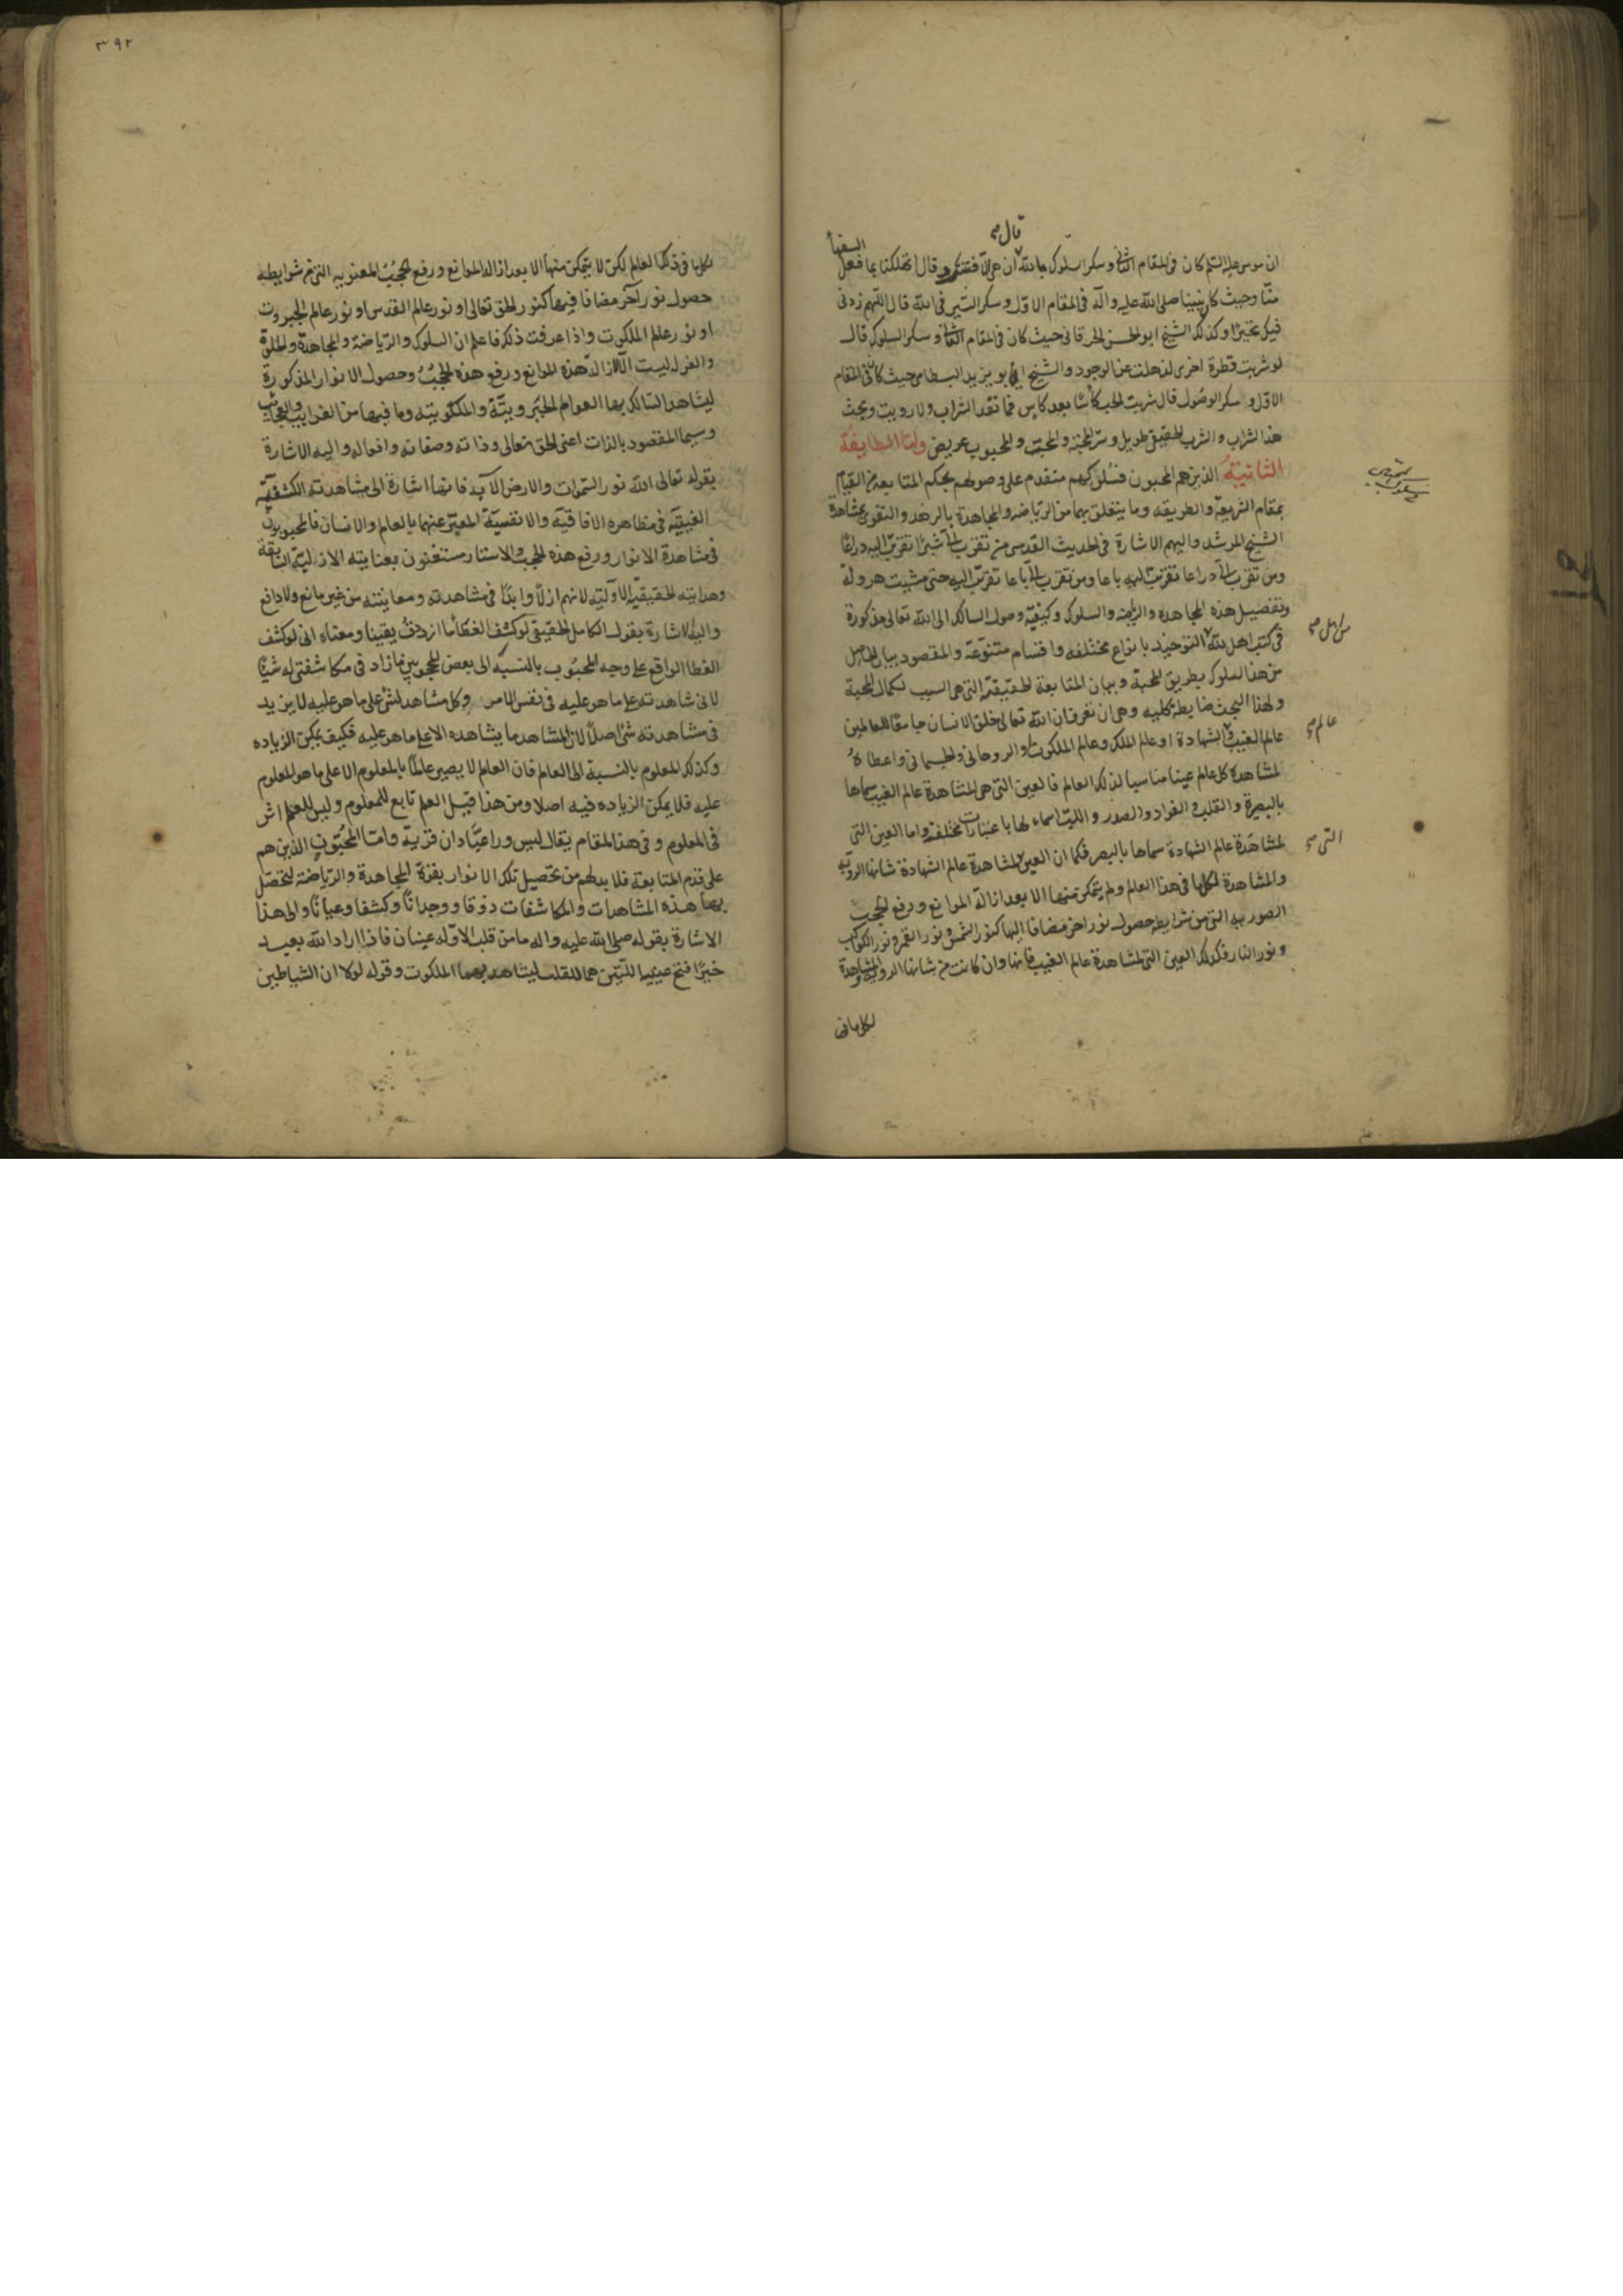 قال صح
السفهاء
ان موسى عليه السلم كان فى المقام الثانى وسكر السلوك بالله ان هى الا فتنتك وقال اتهلكنا بما فعل
منّا وحيث كان نبينا صلى الله عليه وآله فى المقام الاول وسكر السّير فى الله قال اللهم زدنى
فيك تحيّرا وكذلك الشيخ ابو الحسن الخرقانى حيث كان فى المقام الثانى وسكر السلوك قال
لو شربت قطرة اخرى لذهلت عن الوجود والشيخ ابو يزيد البسطامى حيث كان فى المقام
الاول وسكر الوصول قال شربت الحب كأسًا بعد كاس فما نفد الشراب ولا رويت وبحث
هذا الشراب والشرب الحقيقى طويل وسرّ المحبّة والمحبّ والمحبوب عريض وامّا الطايفة
الثانية الذين هم المحبون فسلوكهم متقدم على وصولهم بحكم المتابعة من القيام
بمقام الشريعة والطريقه وما يتعلق بهما من الرّياضه والمجاهدة بالزهد والتقوى بمشاهدة
الشيخ المرشد واليهم الاشارة فى الحديث القدسى من تقرّب الىّ شبرًا تقرّبت اليه ذراعًا
ومن تقرّب الىّ ذراعا تقرّبت اليه باعا ومن تقرّب الىّ باعا تقرّبت اليه حتى مشيت هرولة
وتفصيل هذه المجاهده والرياضه والسلوك وكيفيّة وصول السالك الى الله تعالى مذكورة
من اهل صح
فى كتب اهل الله التوحيد بانواع مختلفه واقسام متنوّعة والمقصود بيان الحاصل
من هذا السلوك بطريق المحبة وبيان المتابعة الحقيقيّة التى هى السبب لكمال المحبة
ولهذا البحث ضابطه كليه وهى ان تعرف ان الله تعالى خلق الانسان جامعًا للعالمين
عالم صح
عالم الغيب والشهادة او عالم الملك وعالم الملكوت او الروحانى والجسمانى واعطاهُ
لمشاهدة كل عالم عينا مناسبا لذلك العالم فالعين التى هى لمشاهدة عالم الغيب سماها
بالبصيرة والقلب والفواد والصدر واللبّ اسماء لها باعتبارات مختلفة واما العين التى
التى صح
لمشاهدة عالم الشهادة سماها بالبصر فكما ان العين لمشاهدة عالم الشهادة شانها الروية
والمشاهدة لكلما فى هذا العالم ولم يتمكن منها الا بعد ازالة الموانع ورفع الحجب
الصوريه التى من شرايطه حصول نور اخر مضافا اليها كنور الشمس ونور القمر ونور الكواكب
ونور النار فكذلك العين التى لمشاهدة عالم الغيب فانها وان كانت من شانها الروية والمشاهدة
لكل ما فى
٣٩٢
لكل ما فى ذلك العالم لكن لا يتمكن منها الا بعد ازالة الموانع ورفع الحجب المعنويه التى من شرايطه
حصول نور آخر مضافا فيها كنور الحق تعالى او نور عالم القدس او نور عالم الجبروت
او نور عالم الملكوت واذا عرفت ذلك فاعلم ان السلوك والرّياضة والمجاهدة والخلوة
والعزلة ليست الا لازالة هذه الموانع ورفع هذه الحجب وحصول الانوار المذكورة
ليشاهد السّالك بها العوالم الجبروتيّة والملكوتيّة وما فيها من الغرايب والعجائب
وسيما المقصود بالذات اعنى الحق تعالى وذاته وصفاته وافعاله واليه الاشارة
بقوله تعالى الله نور السّموات والارض الآية فانها اشارة الى مشاهدته الكشفيّة
الغيبيّة فى مظاهره الافاقيّة والانفسيّة المعبّر عنها بالعالم والانسان فالمحبوبون
فى مشاهدة الانوار ورفع هذه الحجب والاستار مستغنون بعنايته الازليّة السّابقة
وهدايته الحقيقيّة الاوّليّة لانهم ازلًا وابدًا فى مشاهدته ومعاينته من غير مانع ولا دافع
واليه الاشارة بقول الكامل الحقيقى لو كشف الغطا ما ازددت يقينا ومعناه انى لو كشف
الغطا الواقع على وجه المحبوب بالنسبة الى بعض المحجوبين ما زاد فى مكاشفتى له شيئًا
لانى شاهدته على ما هو عليه فى نفس الامر وكل مشاهد لشئ على ما هو عليه لا يزيد
فى مشاهدته شئ اصلًا لان المشاهد ما يشاهده الا على ما هو عليه فكيف يمكن الزياده
وكذلك المعلوم بالنسبة الى العالم فان العالم لا يصير عالمًا بالمعلوم الا على ما هو المعلوم
عليه فلا يمكن الزياده فيه اصلا ومن هذا قيل العلم تابع للمعلوم وليس للعلم اثر
فى المعلوم وفى هذا المقام يقال ليس وراء عبّادان قرية وامّا المحبّون الذين هم
على قدم المتابعة فلا بد لهم من تحصيل تلك الانوار بقوّة المجاهدة والرّياضة لتحصّل
بها هذه المشاهدات والمكاشفات ذوقا ووجدانًا وكشفا وعيانًا والى هذا
الاشارة بقوله صلى الله عليه واله ما من قلب الا وله عينان فاذا اراد الله بعبد
خيرًا فتح عينيه اللّتين هما للقلب ليشاهد بهما الملكوت وقوله لولا ان الشياطين